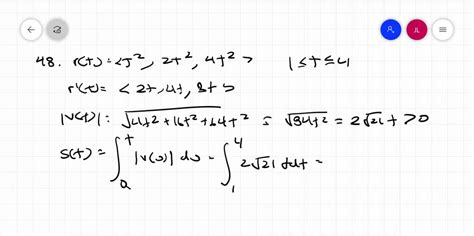 48. r(t) = <t², 2t², 4t²> 1 ≤ t ≤ 4
r'(t) = <2t, 4t, 8t>
|v(t)|: √4t² + 16t² + 64t² = √84t² = 2√21 t > 0
s(t) = ∫ₐᵗ |v(u)| du = ∫₁⁴ 2√21 t dt =